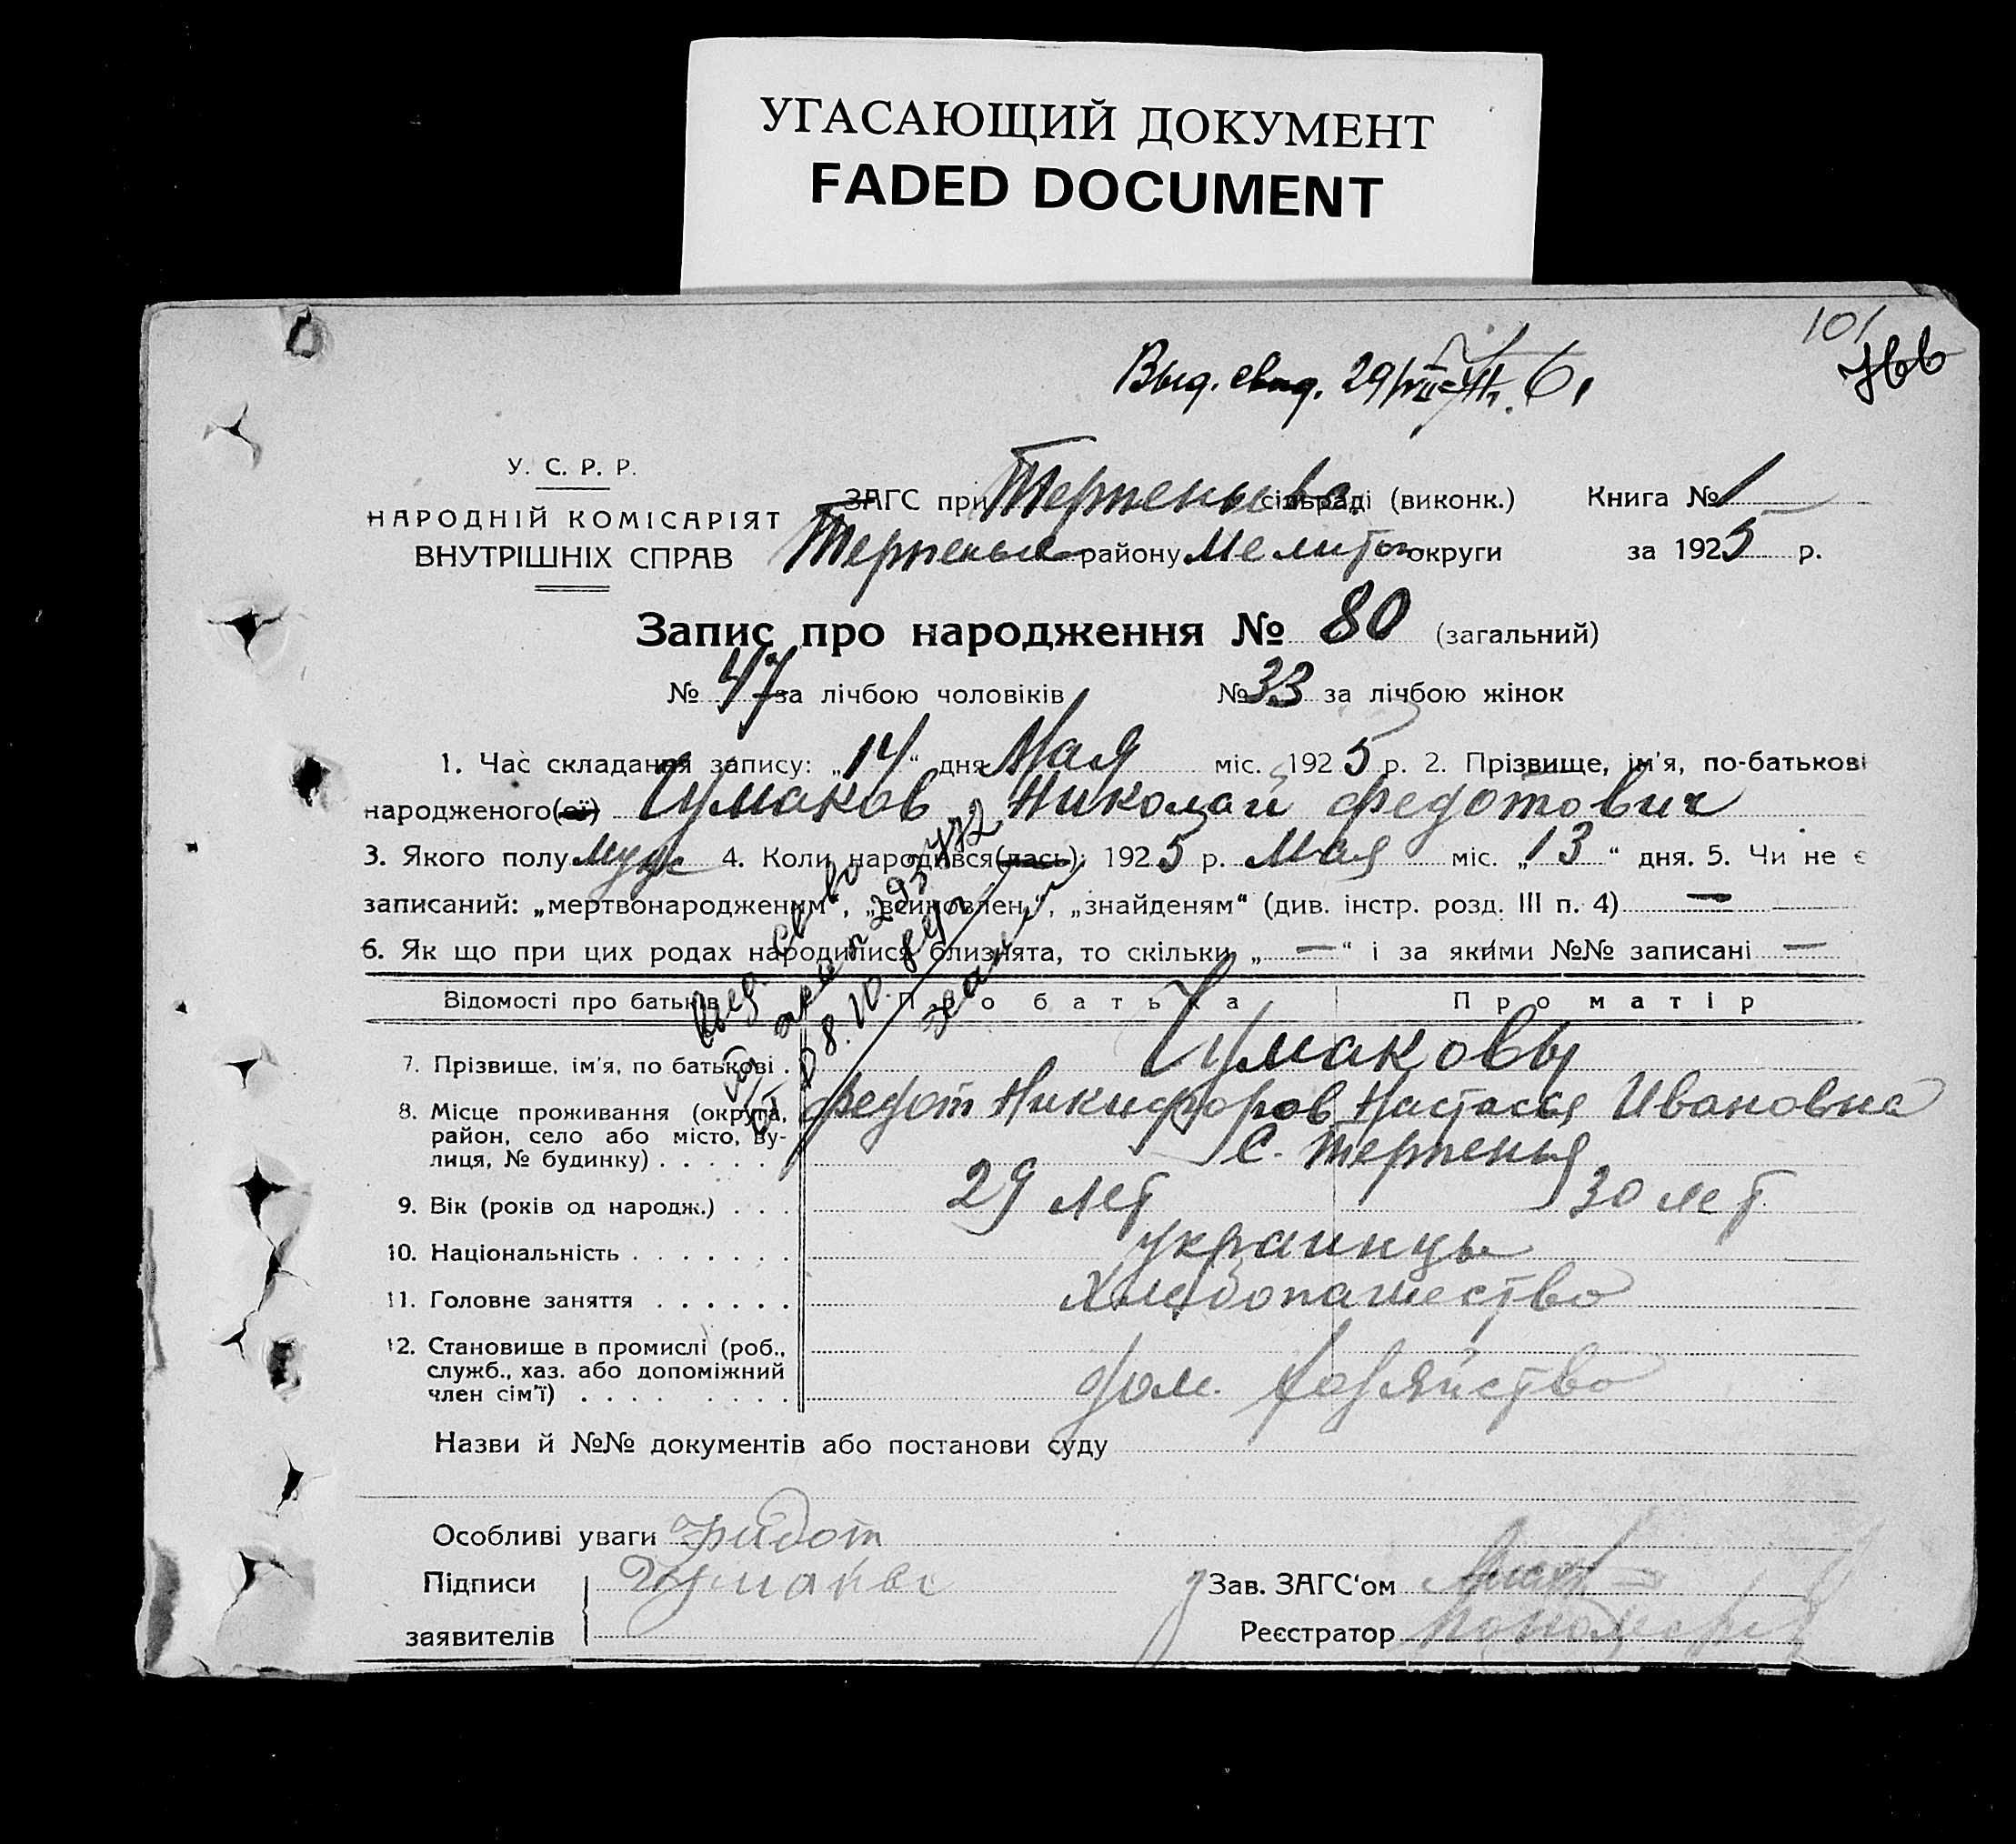 УГАСАЮЩИЙ ДОКУМЕНТ
FADED DOCUMENT
101
Выд. свид. 29/VII
У. С. Р. Р.
НАРОДНІЙ КОМІСАРІЯТ
ВНУТРІШНІХ СПРАВ
ЗАГС при Терпеньев. сільраді (виконк.) Книга № 1
Терпенье району Мелитоп округи за 1925 р.
Запис про народження № 80 (загальний)
№ 47 за лічбою чоловіків № 33 за лічбою жінок
1. Час складання запису: „14“ дня Мая міс. 1925 р. 2. Прізвище, ім'я, по-батькові
народженого(ої) Чумаков Николай Федотович
3. Якого полу муж 4. Коли народився(лась): 1925 р. Мая міс. „13“ дня. 5. Чи не є
записаний: „мертвонародженим“, „всиновлен.“, „знайденям“ (див. інстр. розд. III п. 4) —
6. Як що при цих родах народилися близнята, то скільки „—“ і за якими №№ записані —
Відомості про батьків Про батька Про матір
7. Прізвище, ім'я, по батькові . Чумаковы
Федот Никифоров Настасья Ивановна
8. Місце проживання (округа,
район, село або місто, ву-
лиця, № будинку) . . . . . с. Терпенья
9. Вік (років од народж.) . . . 29 лет 30 лет
10. Національність . . . . . . . украинцы
11. Головне заняття . . . . . . Хлебопашество
12. Становище в промислі (роб.,
служб., хаз. або допоміжний
член сім'ї) . . . . . . . . дом. хозяйство
Назви й №№ документів або постанови суду
Особливі уваги Фидот
Підписи
заявителів
Зав. ЗАГС'ом
Реєстратор